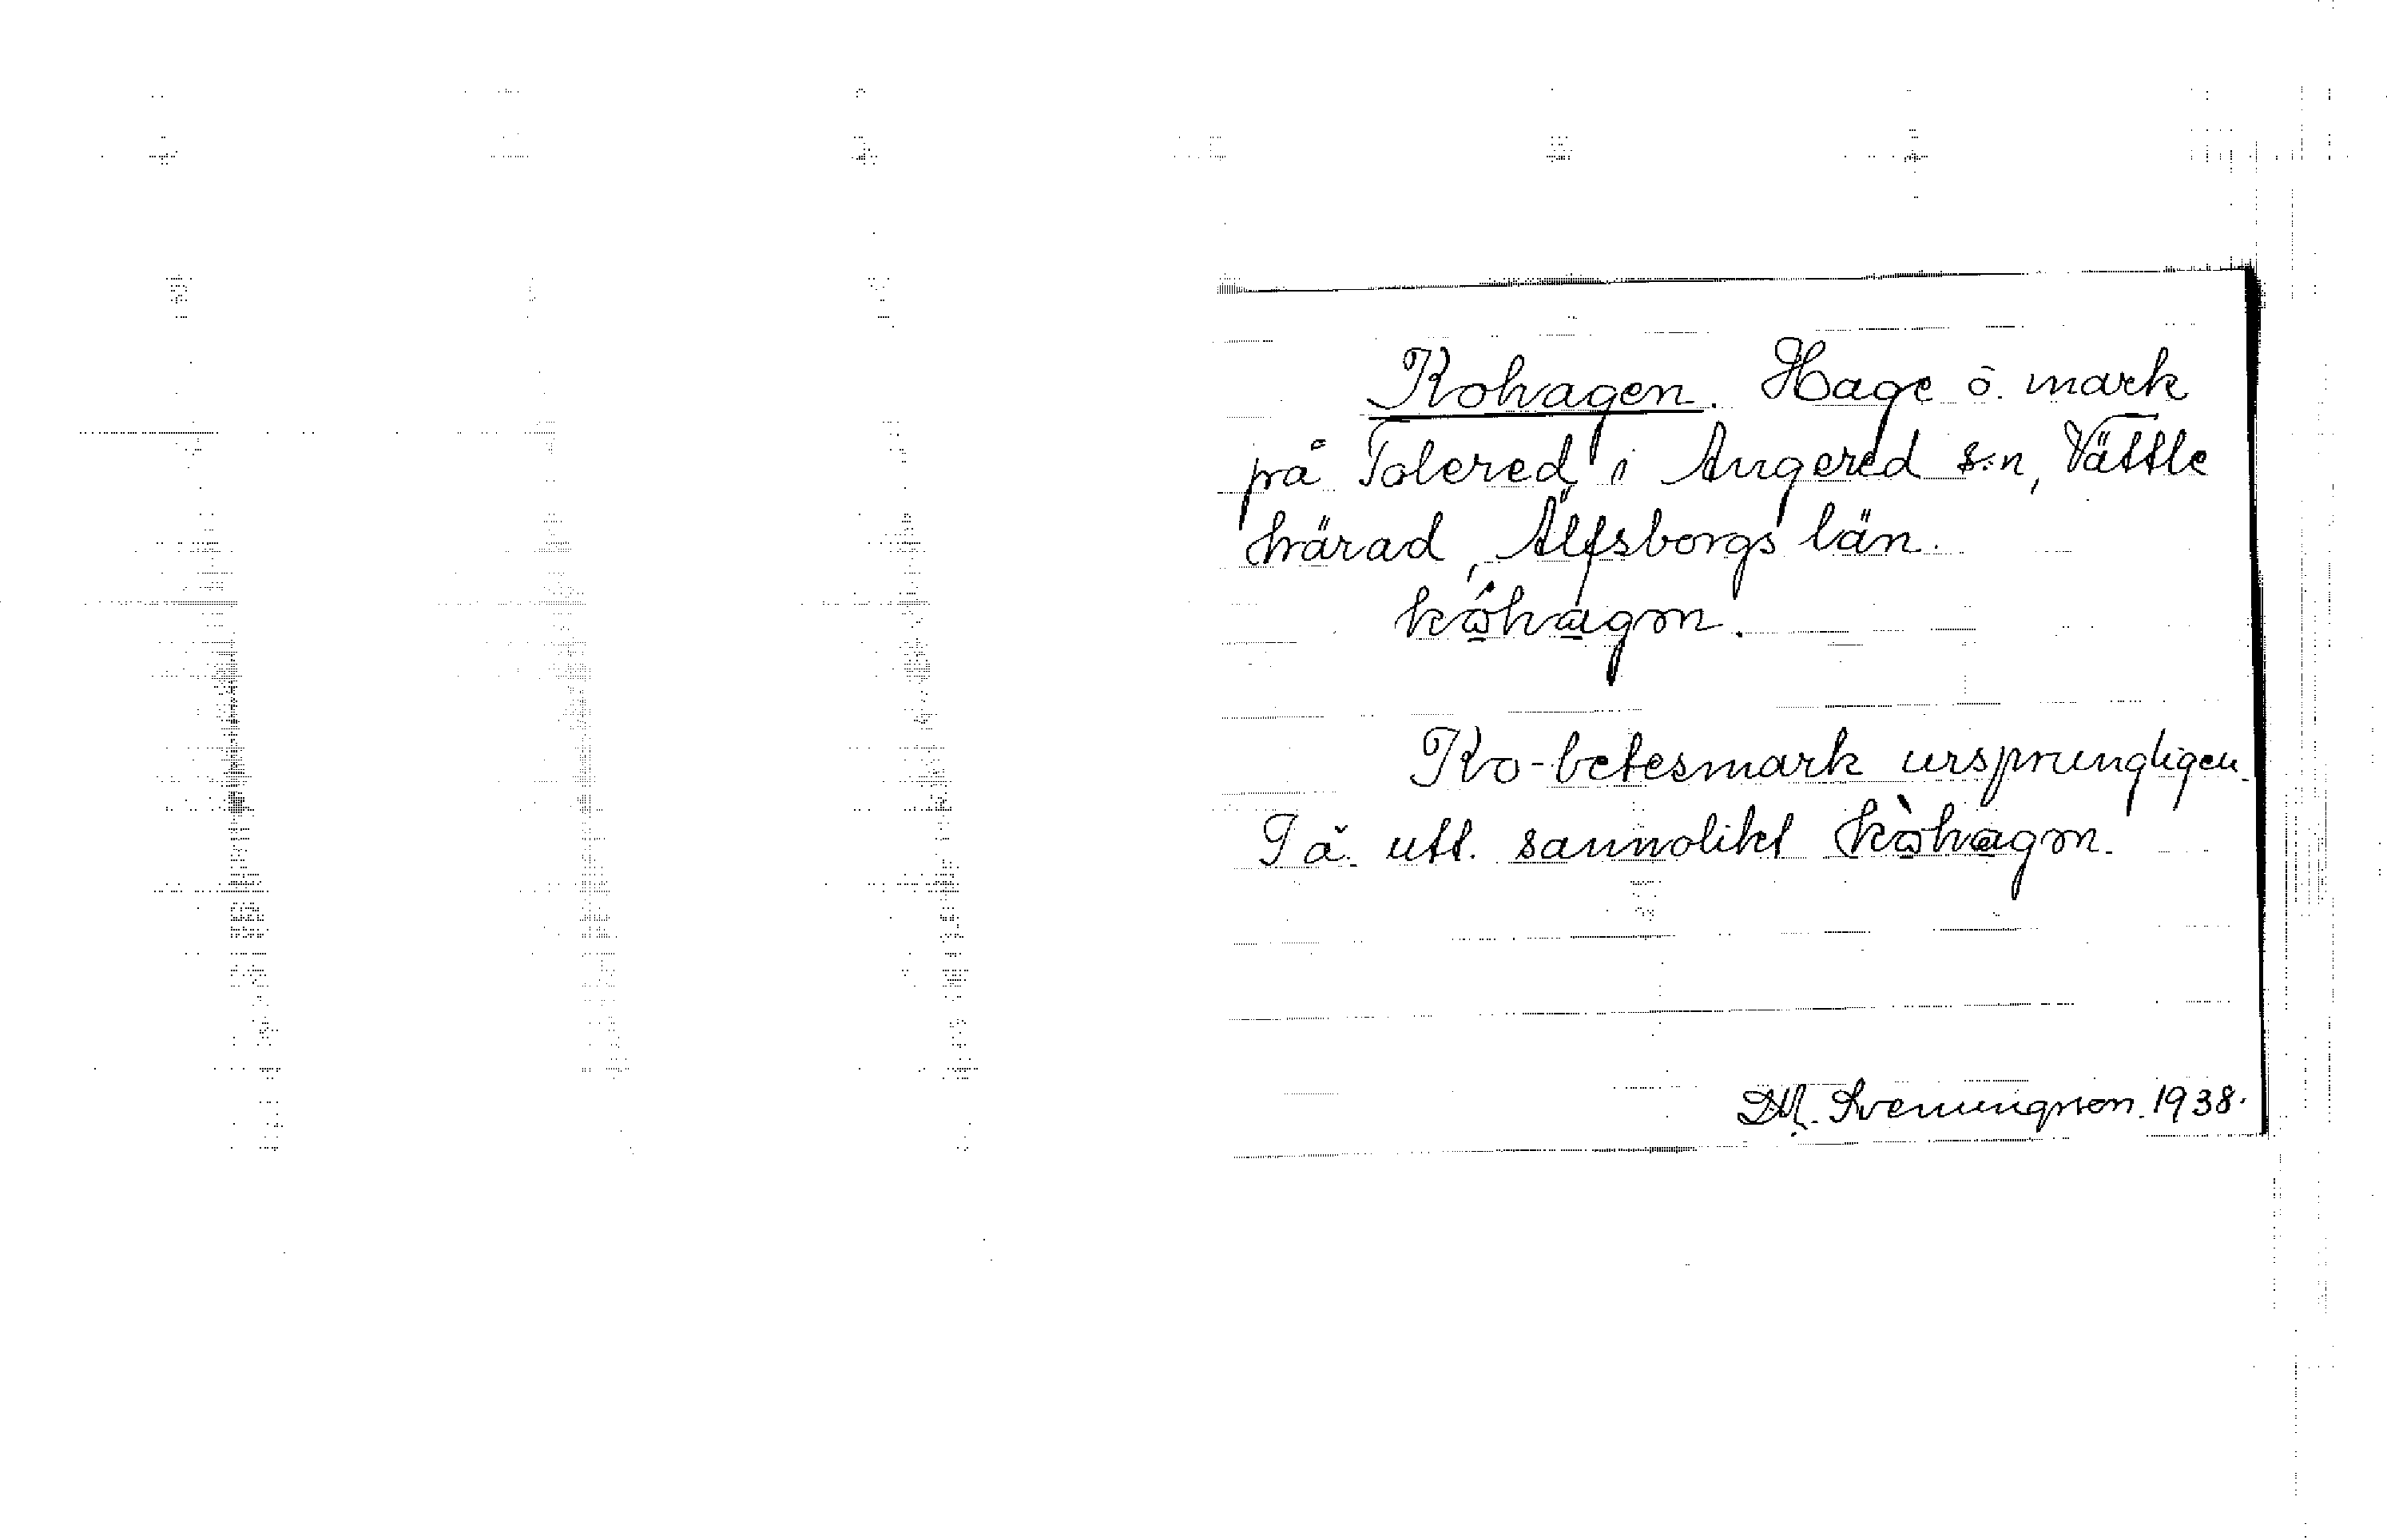 Kohagen. Hage o. mark
på Tolered i Angered s:n, Vättle
härad, Älfsborgs län.
kóhàgɔn.
Ko-betesmark ursprungligen.
I ä. utt. sannolikt kòhagɔn.
Svenungsson 1938.